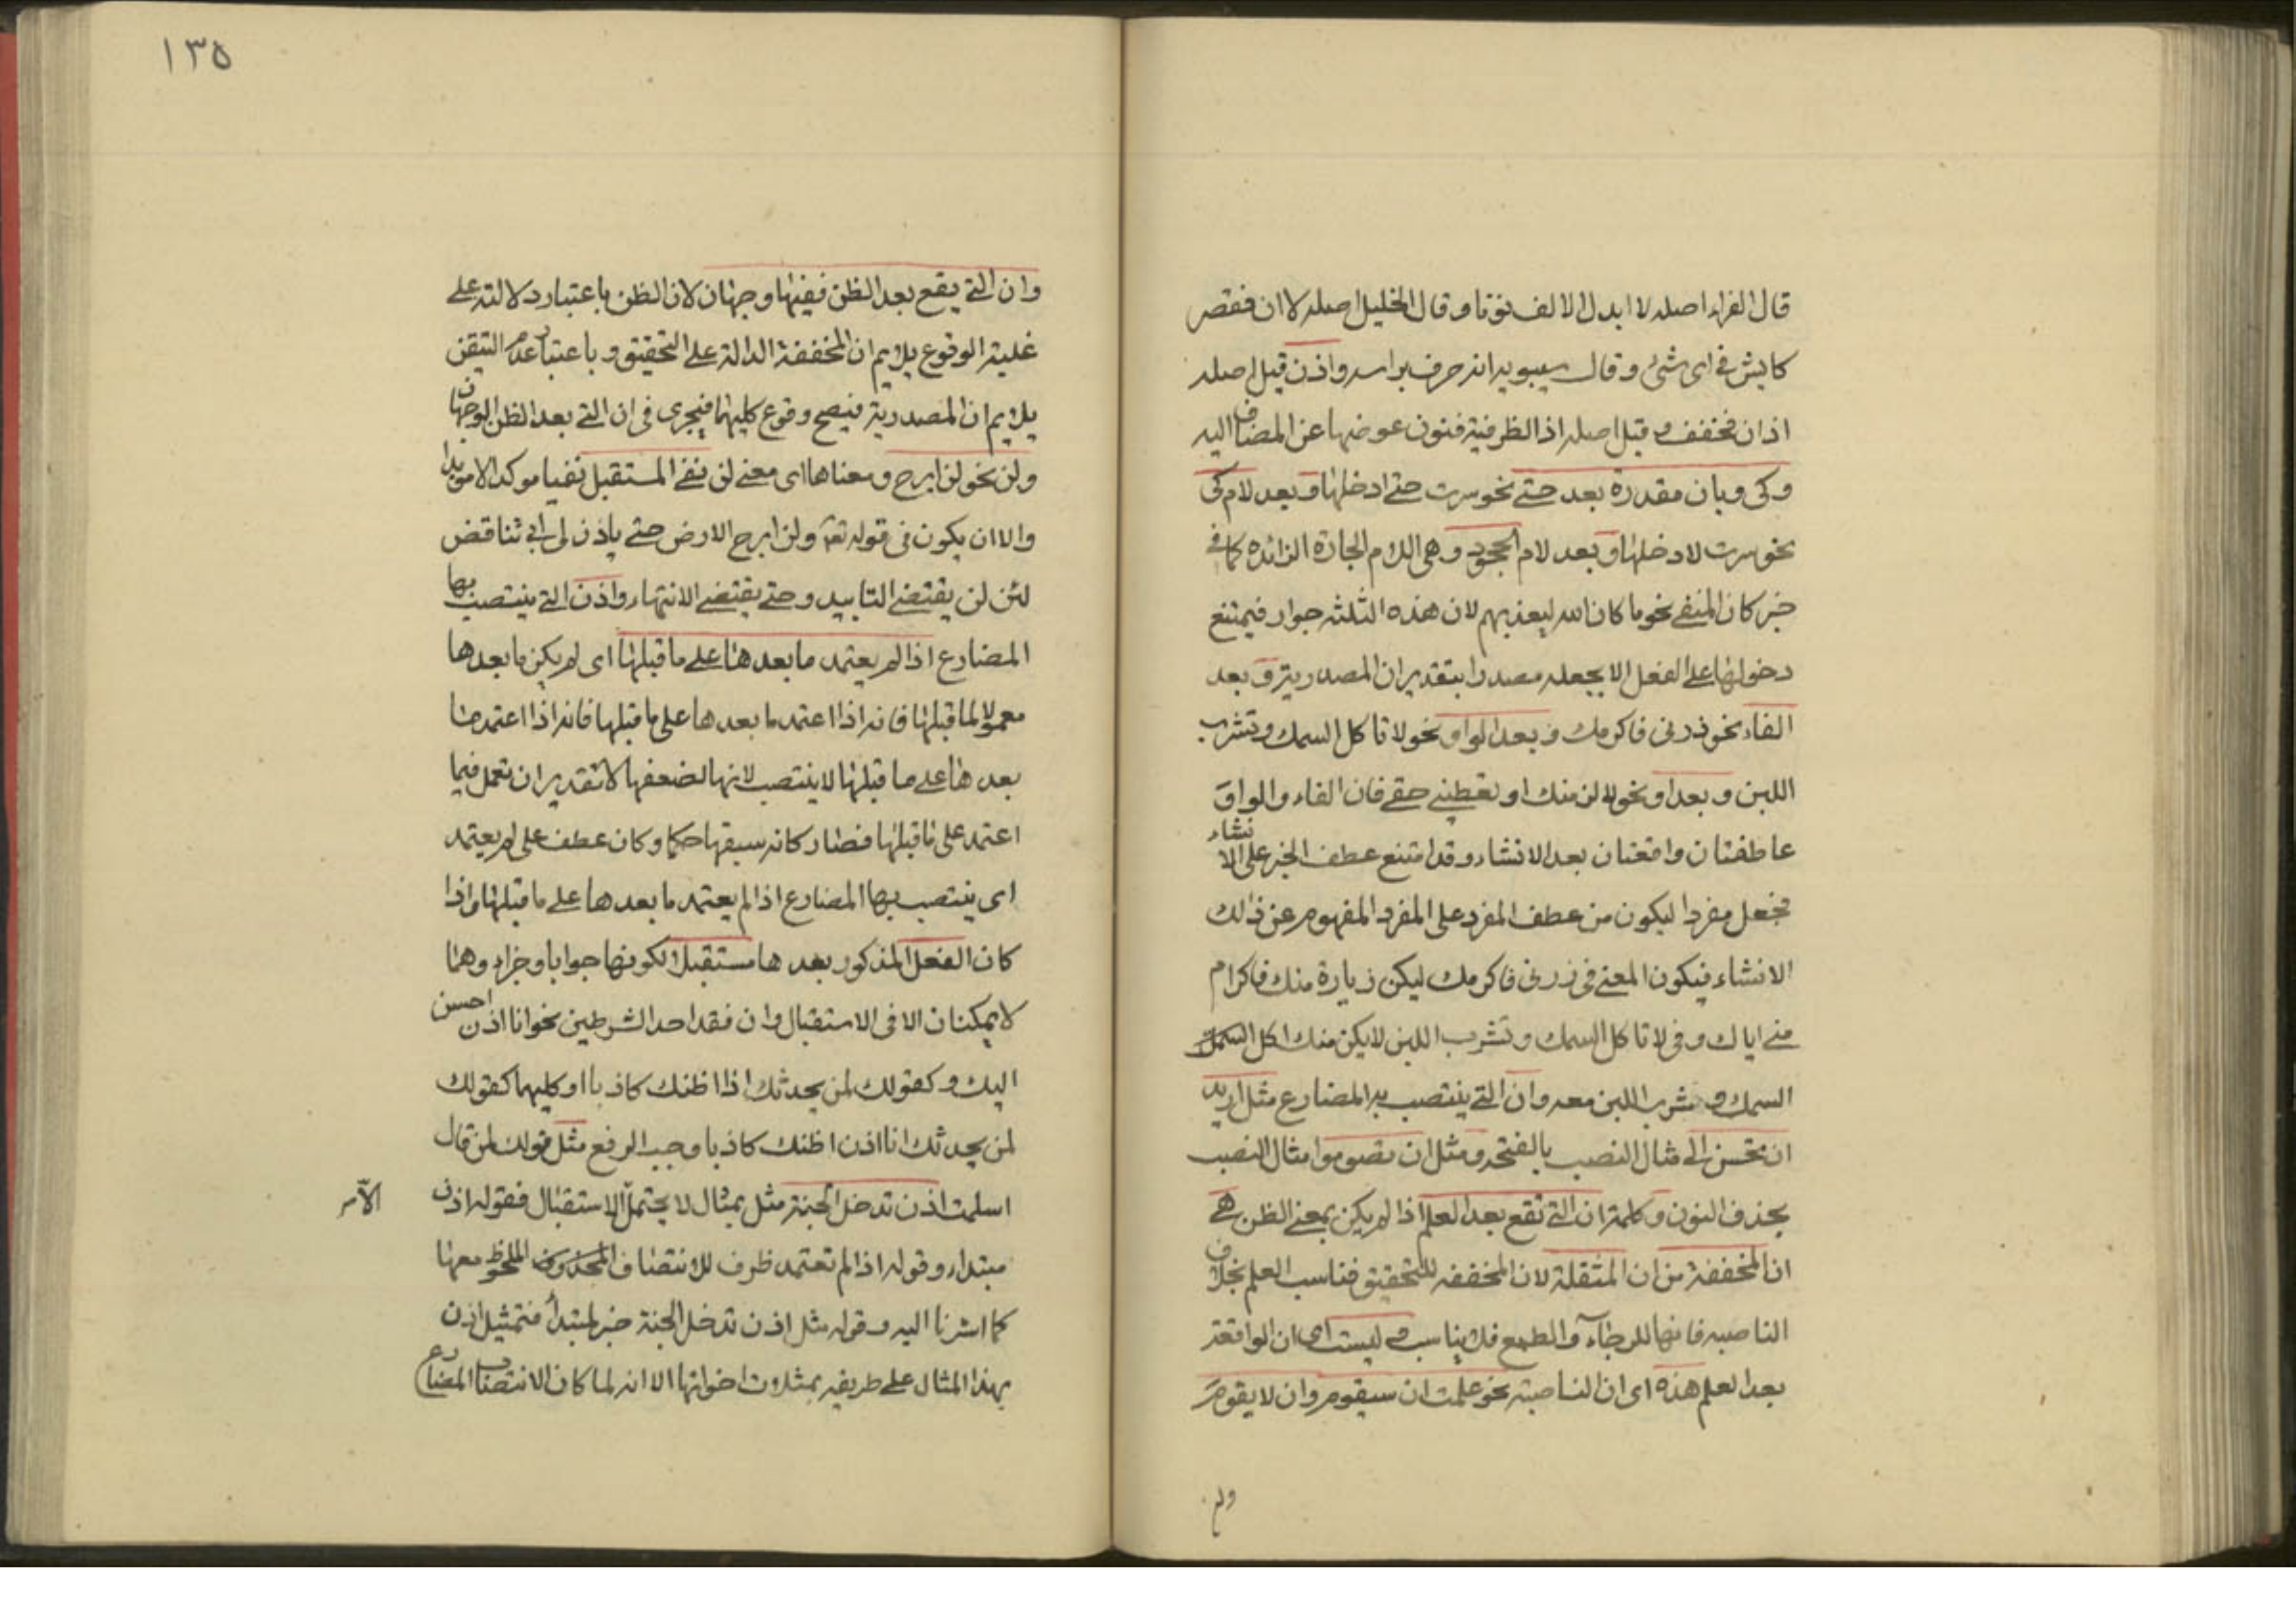 قال الفراء اصله لا ابدل الالف نونا وقال الخليل اصله لا ان فقصر
كايش في اي شئ وقال سيبويه انه حرف براسه واذن قيل اصله
اذ ان فخفف وقيل اصله اذ الظرفية فنون عوضها عن المضاف اليه
وكى وبان مقدرة بعد حتى نحو سرت حتى ادخلها وبعد لام كى
نحو سرت لادخلها وبعد لام الجحود وهى اللام الجارة الزائدة كما في
خبر كان المنفى نحو ما كان الله ليعذبهم لان هذه الثلثه جوار فيمتنع
دخولها على الفعل الا بجعله مصدرا بتقدير ان المصدرية وبعد
الفاء نحو زرنى فاكرمك وبعد الواو نحو لا تاكل السمك وتشرب
اللبن وبعد او نحو لالزمنك او تعطينى حقى فان الفاء والواو
عاطفتان واقعتان بعد الانشاء وقد امتنع عطف الخبر على الانشاء
فجعل مفردا ليكون من عطف المفرد على المفرد المفهوم عن ذلك
الانشاء فيكون المعنى فى زرنى فاكرمك ليكن زيارة منك فاكرام
منى اياك وفى لا تاكل السمك وتشرب اللبن لا يكن منك اكل السمك
السمك وشرب اللبن معه وان التى ينتصب به المضارع مثل اريد
ان تحسن الى مثال النصب بالفتحه ومثل ان تصوموا مثال النصب
بحذف النون وكلمة ان التى تقع بعد العلم اذا لم يكن بمعنى الظن هى
ان المخففة من ان المثقلة لان المخففه للتحقيق فناسب العلم بخلاف
الناصبه فانها للرجاء والطمع فلا يناسبه وليست اى ان الواقعة
بعد العلم هذه اى ان الناصبة نحو علمت ان سيقوم وان لا يقوم
ولم
١٣٥
وان التى يقع بعد الظن ففيها وجهان لان الظن باعتبار دلالته على
غلبة الوقوع يلايم ان المخففة الدالة على التحقيق و باعتبار عدم التيقن
يلايم ان المصدرية فيصح وقوع كليهما فيجرى فى ان التى بعد الظن الوجهان
ولن نحو لن ابرح ومعناها اى معنى لن نفى المستقبل نفيا موكدا لا موبدا
والا ان يكون فى قوله تعالى ولن ابرح الارض حتى ياذن لى ابى تناقض
لئن لن يقتضى التابيد وحتى يقتضى الانتهاء واذن التى ينتصب بها
المضارع اذا لم يعتمد ما بعدها على ما قبلها اى لم يكن ما بعدها
معمولا لما قبلها فانه اذا اعتمد ما بعدها على ما قبلها فانه اذا اعتمد ما
بعدها على ما قبلها لا ينتصب لانها لضعفها لا تقدير ان تعمل فيما
اعتمد على ما قبلها فصار كانه سبقها حكما وكان عطف على لم يعتمد
اى ينتصب بها المضارع اذا لم يعتمد ما بعدها على ما قبلها واذا
كان الفعل المذكور بعدها مستقبلا لكونها جوابا وجزاء وهما
لا يمكنان الا فى الاستقبال وان فقد احد الشرطين نحو انا اذن احسن
اليك وكقولك لمن يحدثك اذا اظنك كاذبا او كليهما كقولك
لمن يحدثك انا اذن اظنك كاذبا وجب الرفع مثل قولك لمن قال
اسلمت اذن تدخل الجنة مثل بمثال لا يحتمل الاستقبال فقوله اذن
الا
مبتداء وقوله اذا لم تعتمد ظرف للانتصاف المحذوف الملحوظ معها
كما اشرنا اليه وقوله مثل اذن تدخل الجنة خبر لمبتدأ فتمثيل اذن
بهذا المثال على طريقه بمثلات اخواتها الا انه لما كان الانتصاب المضارع